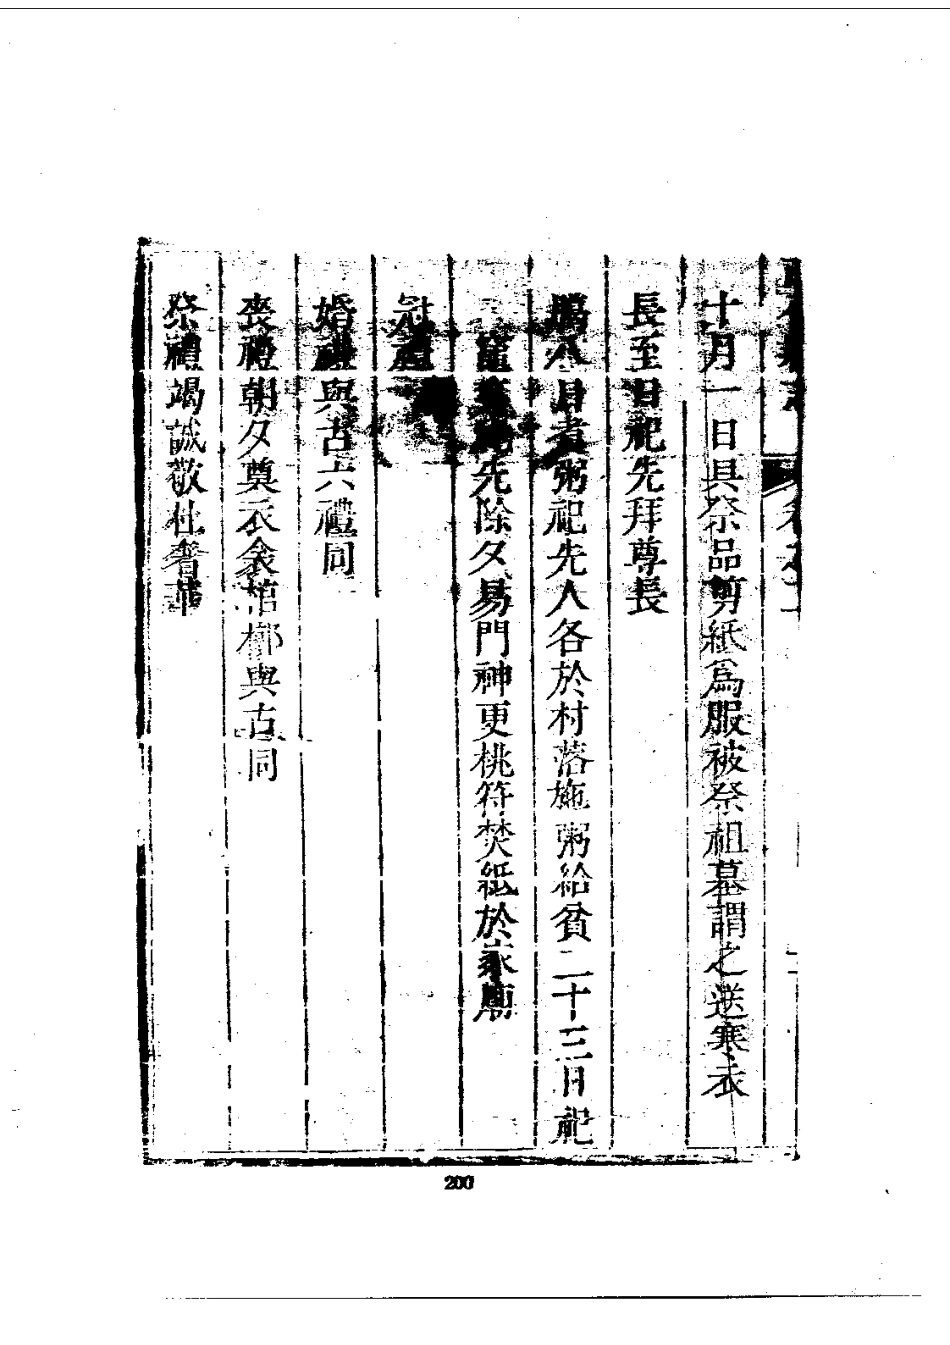 卷之二
十月一日具祭品剪紙爲服被祭祖墓謂之送寒衣
長至日祀先拜尊長
臘八日煮粥祀先人各於村落施粥給貧二十三日祀
竈先除夕易門神更桃符焚紙於家廟
冠禮
婚禮與古六禮同
喪禮朝夕奠衣衾棺槨與古同
祭禮竭誠敬杜奢華
200